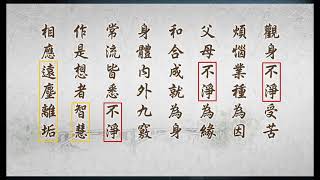 觀身不淨受苦
煩惱業種為因
父母不淨為緣
和合成就為身
身體內外九竅
常流皆悉不淨
作是想者智慧
相應遠塵離垢